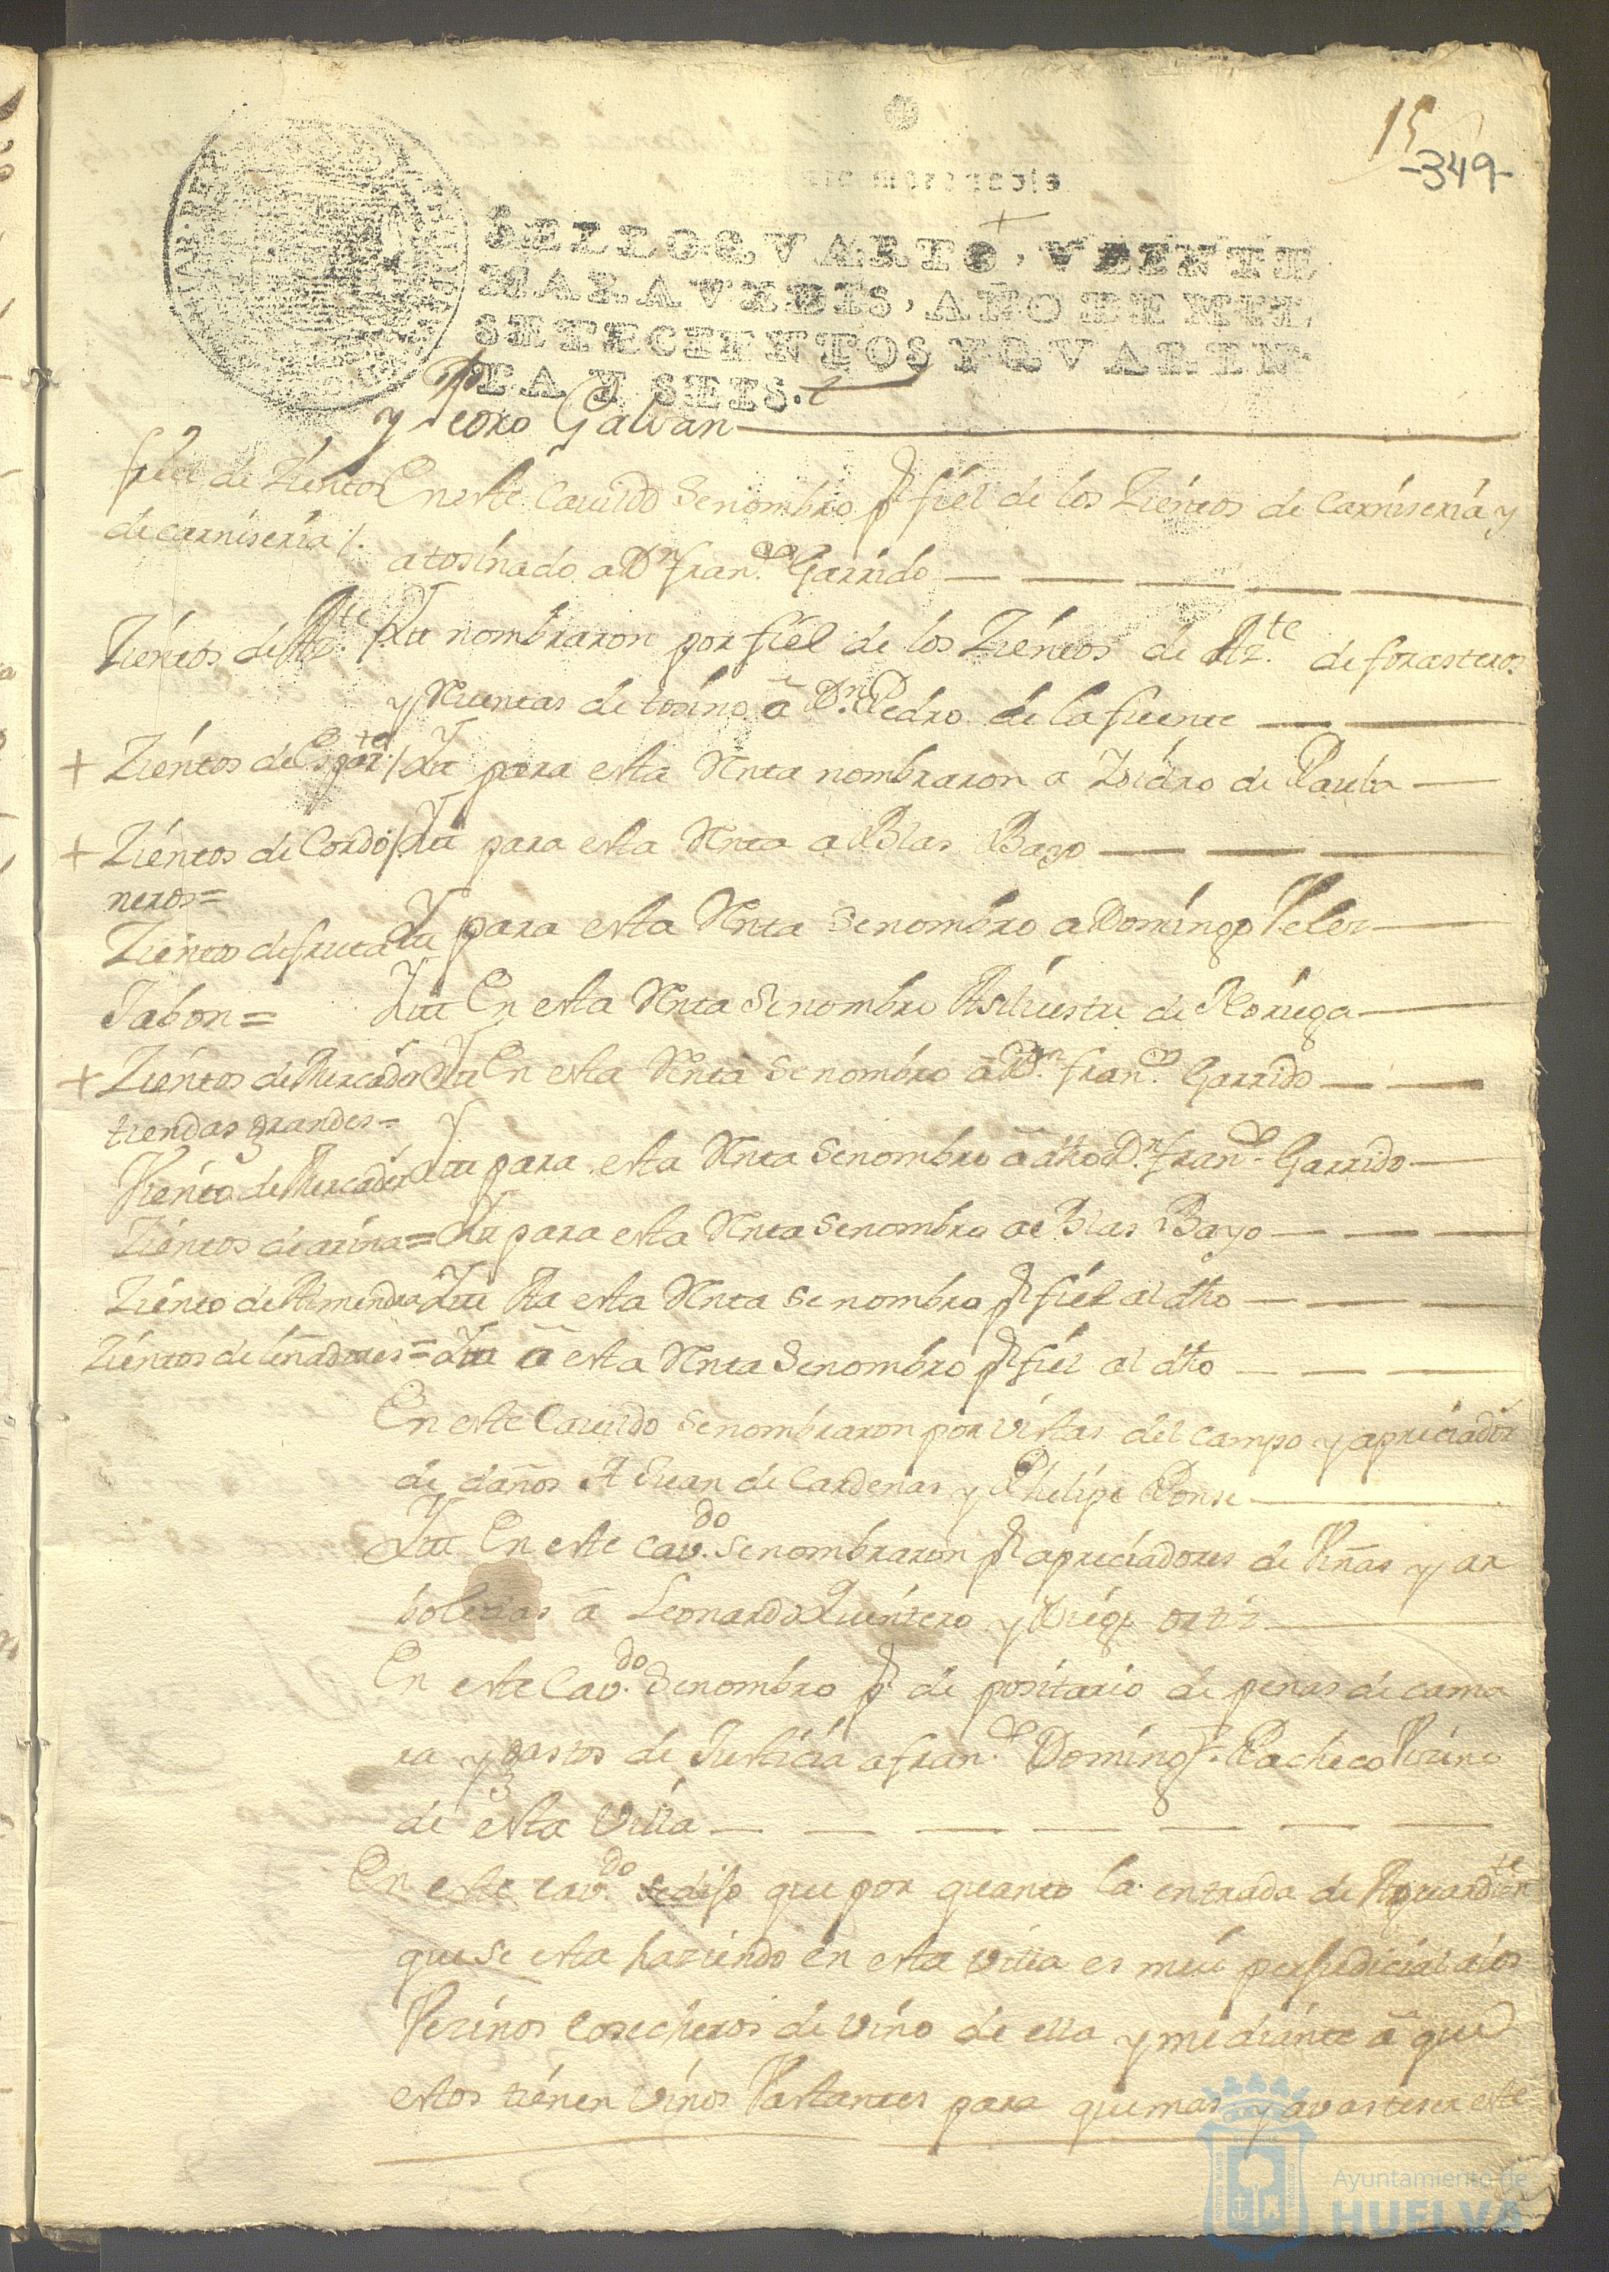 15
-349-
SELLO QVARTO, VEINTE
MARAVEDIS, AÑO DE MIL
SETECIENTOS Y QVAREN-
TA Y SEIS.
y Pedro Galvan
fiel de Zientos
de carniseria /.
En este Cauildo se nombro pr fiel de los Zientos de Carniseria y
atosinado a Dn Franco Garrido
Zientos de Azte
Itt nombraron por fiel de los Zientos de Azte de forasteros
y Rentas de tosino a Dn Pedro de la fuente
+ Zientos de Esparte /
Itt para esta Renta nombraron a Isidro de Paula
+ Zientos de Cordo /
neros =
Itt para esta Renta a Blas Bayo
Zientos de fruta
Itt para esta Renta se nombro a Domingo Velez
Jabon =
Itt En esta Renta se nombro A Silvestre de Noriega
+ Zientos de Mercador
tiendas grandes =
Itt En esta Renta se nombro a Dn Franco Garrido
Viento de Mercador
Itt para esta Renta se nombro a dho Dn Franco Garrido
Zientos de arina =
Itt para esta Renta se nombro a Blas Bayo
Ziento de Almendra
Itt Pa esta Renta se nombro pr fiel al dho
Zientos de leñadores =
Itt a esta Renta se nombro pr fiel al dho
En este Cauildo se nombraron por Vistas del campo y apreciador
de daños A Juan de Cardenas y Phelipe Ponse
Itt En este Cavdo se nombraron pr apreciadores de Viñas y ar
boledas a Leonardo Quintero y Diego ortiz
En este Cavdo Se nombro pr de positario de penas de cama
ra y gastos de Justicia a Franco Domingz Pacheco Vezino
de esta Villa
En este cavdo se dijo que por quanto la entrada de Aguardiente
que se esta haziendo en esta villa es mui perjudicial a los
Vezinos Cosecheros de vino de ella y mediante a que
estos tienen Vinos Vastantes para quemar y avasteser este
Ayuntamiento de
HUELVA